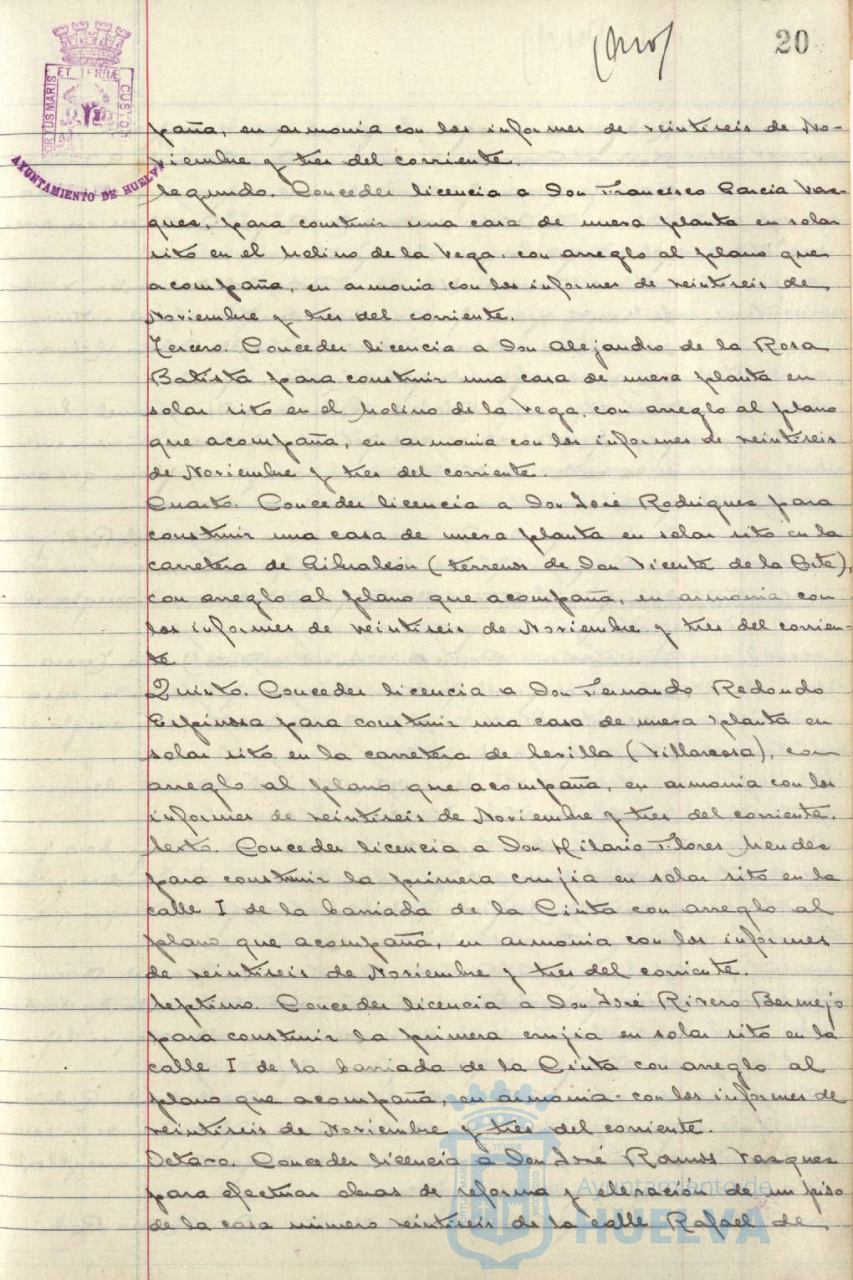 20
ET TERRÆ
PORTUS MARIS
CUSTOD
AYUNTAMIENTO DE HUELVA
paña, en armonia con los informes de veintiseis de No-
viembre y tres del corriente.
Segundo. Conceder licencia a Don Francisco Garcia Vaz-
quez, para construir una casa de nueva planta en solar
sito en el Molino de la Vega, con arreglo al plano que
acompaña, en armonia con los informes de veintiseis de
Noviembre y tres del corriente.
Tercero. Conceder licencia a Don Alejandro de la Rosa
Batista para construir una casa de nueva planta en
solar sito en el Molino de la Vega, con arreglo al plano
que acompaña, en armonia con los informes de veintiseis
de Noviembre y tres del corriente.
Cuarto. Conceder licencia a Don José Rodriguez para
construir una casa de nueva planta en solar sito en la
carretera de Gibraleón (terrenos de Don Vicente de la Corte),
con arreglo al plano que acompaña, en armonia con
los informes de veintiseis de Noviembre y tres del corrien-
te
Quinto. Conceder licencia a Don Fernando Redondo
Espinosa para construir una casa de nueva planta en
solar sito en la carretera de Sevilla (Villarrosa), con
arreglo al plano que acompaña, en armonia con los
informes de veintiseis de Noviembre y tres del corriente.
Sexto. Conceder licencia a Don Hilario Flores Mendez
para construir la primera crujia en solar sito en la
calle I de la barriada de la Cinta con arreglo al
plano que acompaña, en armonia con los informes
de veintiseis de Noviembre y tres del corriente.
Septimo. Conceder licencia a Don José Rivero Bermejo
para construir la primera crujia en solar sito en la
calle I de la barriada de la Cinta con arreglo al
plano que acompaña, en armonia con los informes de
veintiseis de Noviembre y tres del corriente.
Octavo. Conceder licencia a Don José Ramos Vazquez
para efectuar obras de reforma y elevación de un piso
de la casa número veintiseis de la calle Rafael de
Ayuntamiento de
HUELVA